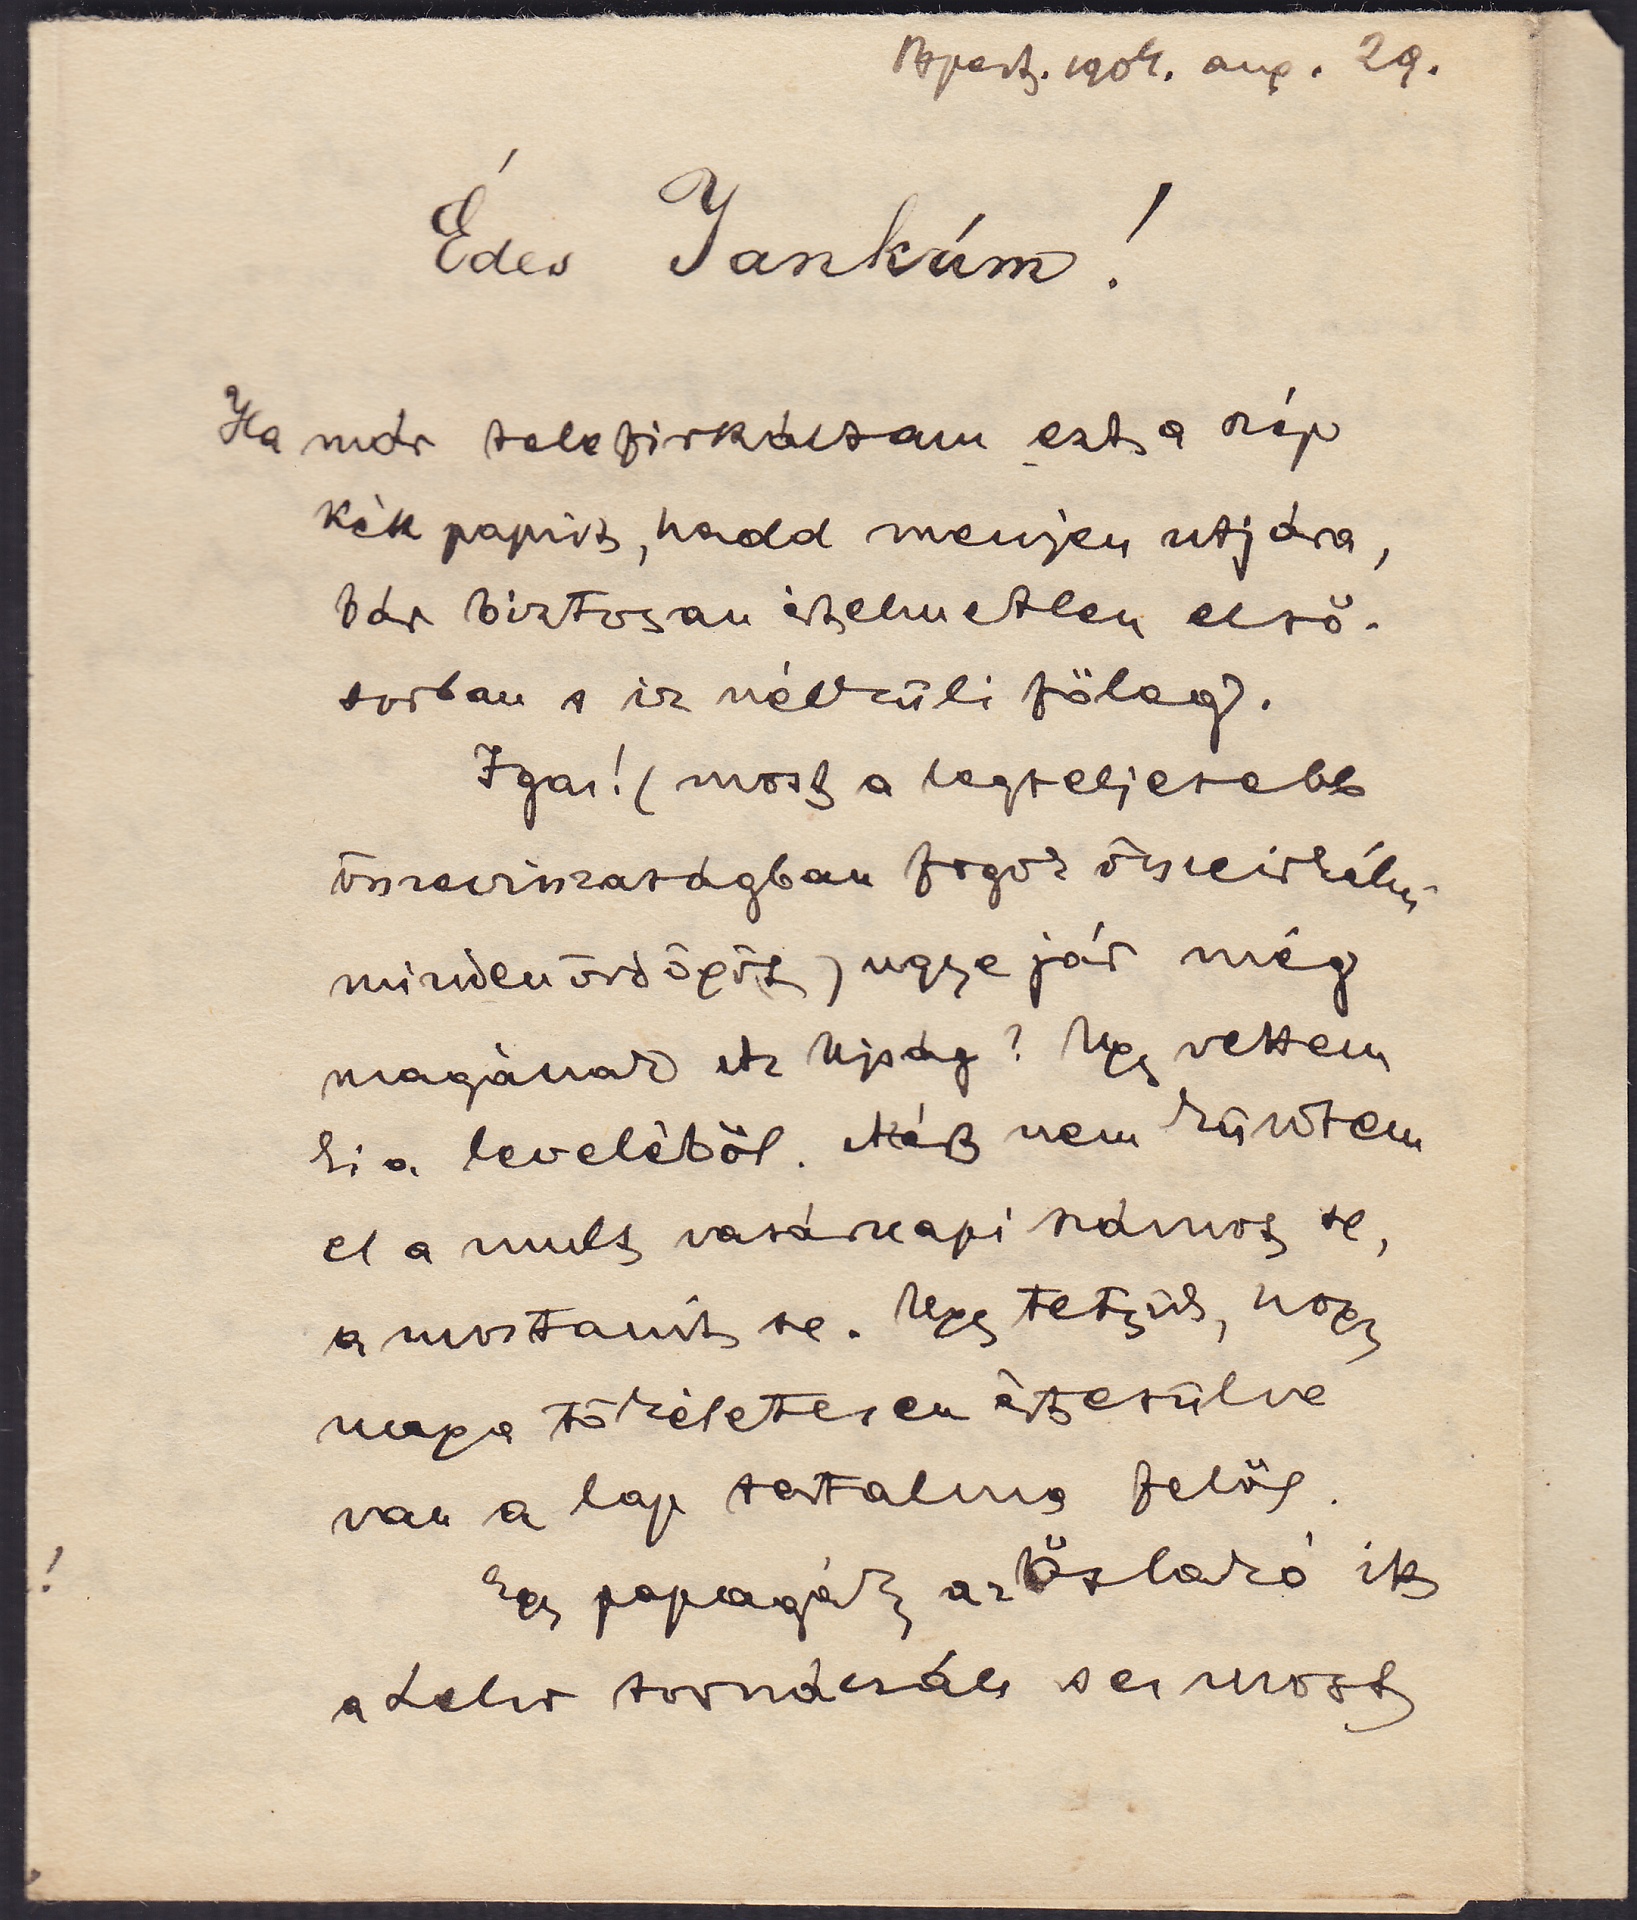 Bpest. 1904. aug. 29.
Édes Jankám!
Ha már telefirkáltam ezt a szép
kék papirt, hadd menjen utjára,
bár biztosan értelmetlen első-
sorban s íz nélküli főleg.
Igaz! (most a legteljesebb
összevisszaságban fogok összeirkálni
minden ördögöt) ugye jár még
magának Az Ujság? Ugy vettem
ki a leveléből. Azért nem küldtem
el a mult vasárnapi számot se,
a mostanit se. Ugy tetszik, hogy
maga tökéletesen értesülve
van a lap tartalma felől.
! Egy papagály az őslakó itt
a tornáczán és most